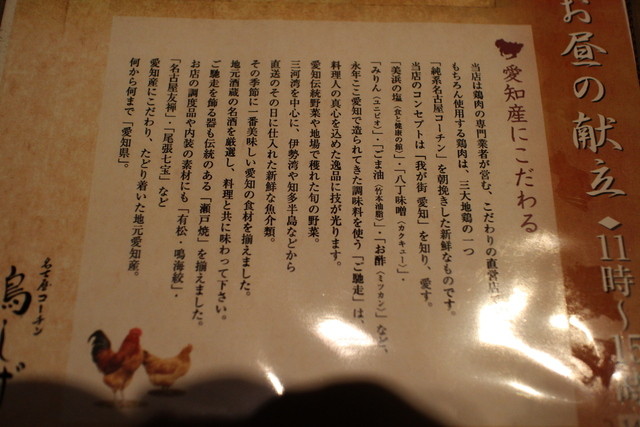 お昼の献立◆11時〜1
愛知産にこだわる
当店は鶏肉の専門業者が営む、こだわりの直営店
もちろん使用する鶏肉は、三大地鶏の一つ
「純系名古屋コーチン」を朝挽きした新鮮なものです。
当店のコンセプトは「我が街 愛知」を知り、愛す。
「美浜の塩（食と健康の館）」・「八丁味噌（カクキュー）」・
「みりん（ユニビオ）」・「ごま油（竹本油脂）」・「お酢（ミツカン）」など、
永年ここ愛知で造られてきた調味料を使う「ご馳走」は、
料理人の真心を込めた逸品に技が光ります。
愛知伝統野菜や地場で穫れた旬の野菜。
三河湾を中心に、伊勢湾や知多半島などから
直送のその日に仕入れた新鮮な魚介類。
その季節に一番美味しい愛知の食材を揃えました。
地元酒蔵の名酒を厳選し、料理と共に味わって下さい。
ご馳走を飾る器も伝統のある「瀬戸焼」を揃えました。
お店の調度品や内装の素材にも「有松・鳴海絞」・
「名古屋友禅」・「尾張七宝」など
愛知産にこだわり、たどり着いた地元愛知産。
何から何まで「愛知県」。
名古屋コーチン
鳥しげ